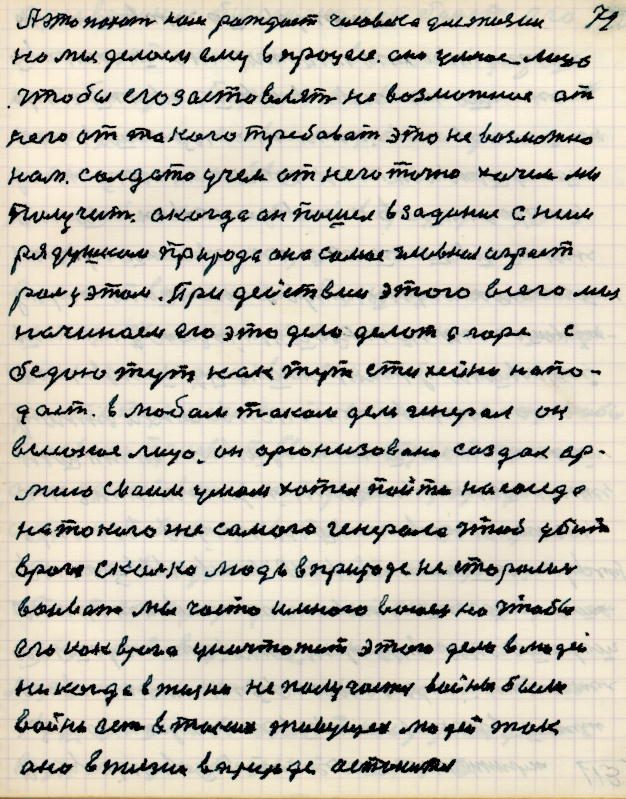 А это поток нам рождает человека для жизни 79
но мы делаем ему в процесе. оно умное лицо
чтобы его заставлять не возможное от
него от такого требоват это не возможно
нам. солдата учем от него точно хочем мы
получит. а когда он пошел в задание с ним
рядушком природа она самое главное играет
рол у этом. При действии этого всего мы
начинаем его это дело делат а горе с
бедою тут как тут стихейно напо-
дает. в любом таком деле генерал он
великое лицо. он организовано создал ар-
мию своим умом хотел пойти на соседа
на токого же самого генерала чтоб убит
врага сколко люди в природе не старалис
воеват мы часто и много воюем но чтобы
его как врога уничтожит этого дела в людей
никогда в жизни не получается война была
война ест в таких живущех людей так
оно в жизни в природе астанится